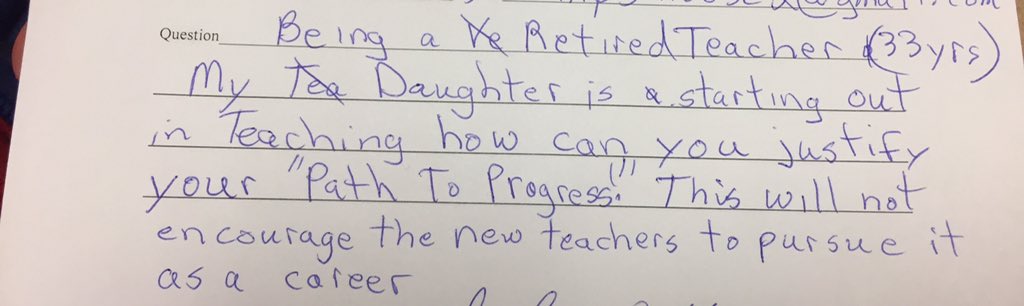 Question Being a Retired Teacher (33 yrs)
My Daughter is a starting out
in Teaching how can you justify
your "Path To Progress"! This will not
encourage the new teachers to pursue it
as a career